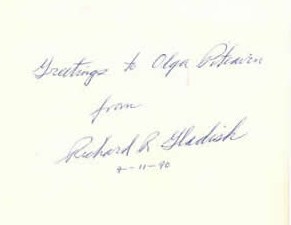 Greetings to Olga
from
Richard R Gladish
9-11-90